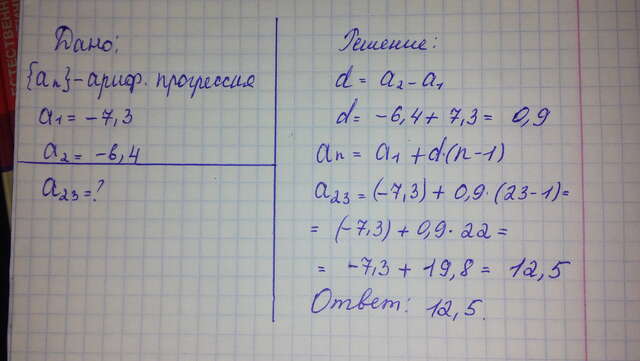 Дано:
{an} - ариф. прогрессия
a1 = -7,3
a2 = -6,4
a23 = ?
Решение:
d = a2 - a1
d = -6,4 + 7,3 = 0,9
an = a1 + d·(n-1)
a23 = (-7,3) + 0,9·(23-1) =
= (-7,3) + 0,9·22 =
= -7,3 + 19,8 = 12,5
Ответ: 12,5.